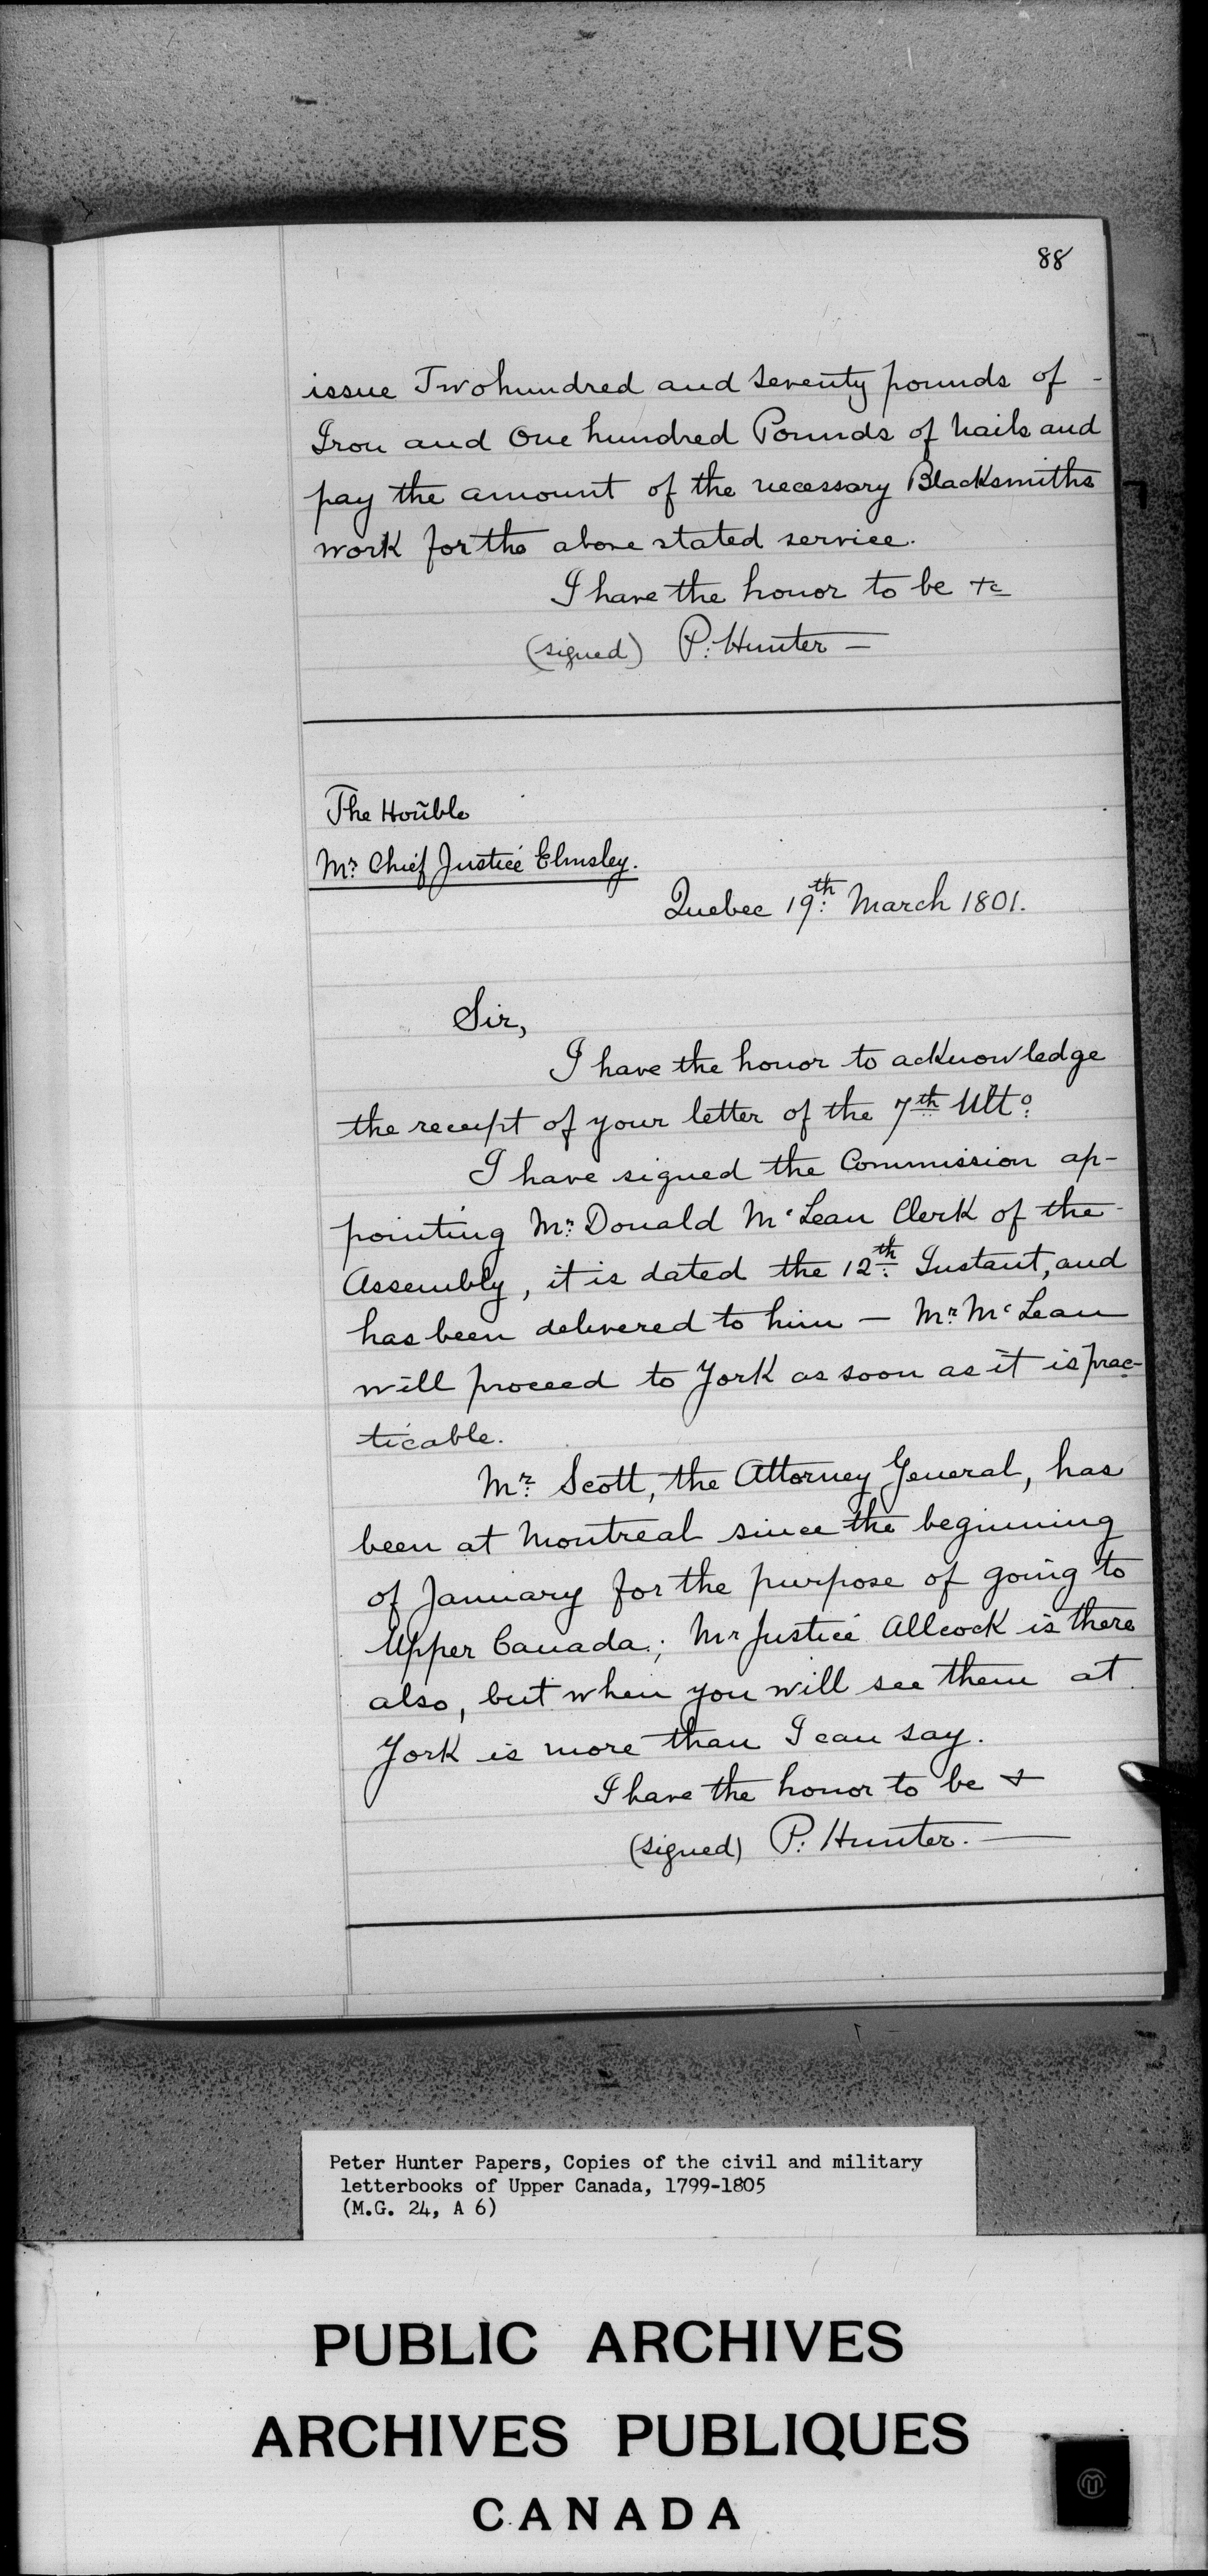 88
issue Two hundred and seventy pounds of -
Iron and One hundred Pounds of nails and
pay the amount of the necessary Blacksmiths
work for the above stated service.
I have the honor to be &c
(signed) P. Hunter —
The Honble
Mr. Chief Justice Elmsley.
Quebec 19th March 1801.
Sir,
I have the honor to acknowledge
the receipt of your letter of the 7th Ulto.
I have signed the Commission ap-
pointing Mr. Donald McLean Clerk of the -
Assembly, it is dated the 12th Instant, and
has been delivered to him — Mr. McLean
will proceed to York as soon as it is prac-
ticable.
Mr. Scott, the Attorney General, has
been at Montreal since the beginning
of January for the purpose of going to
Upper Canada; Mr Justice Allcock is there
also, but when you will see them at
York is more than I can say.
I have the honor to be &
(signed) P. Hunter. —
Peter Hunter Papers, Copies of the civil and military
letterbooks of Upper Canada, 1799-1805
(M.G. 24, A 6)
PUBLIC ARCHIVES
ARCHIVES PUBLIQUES
CANADA